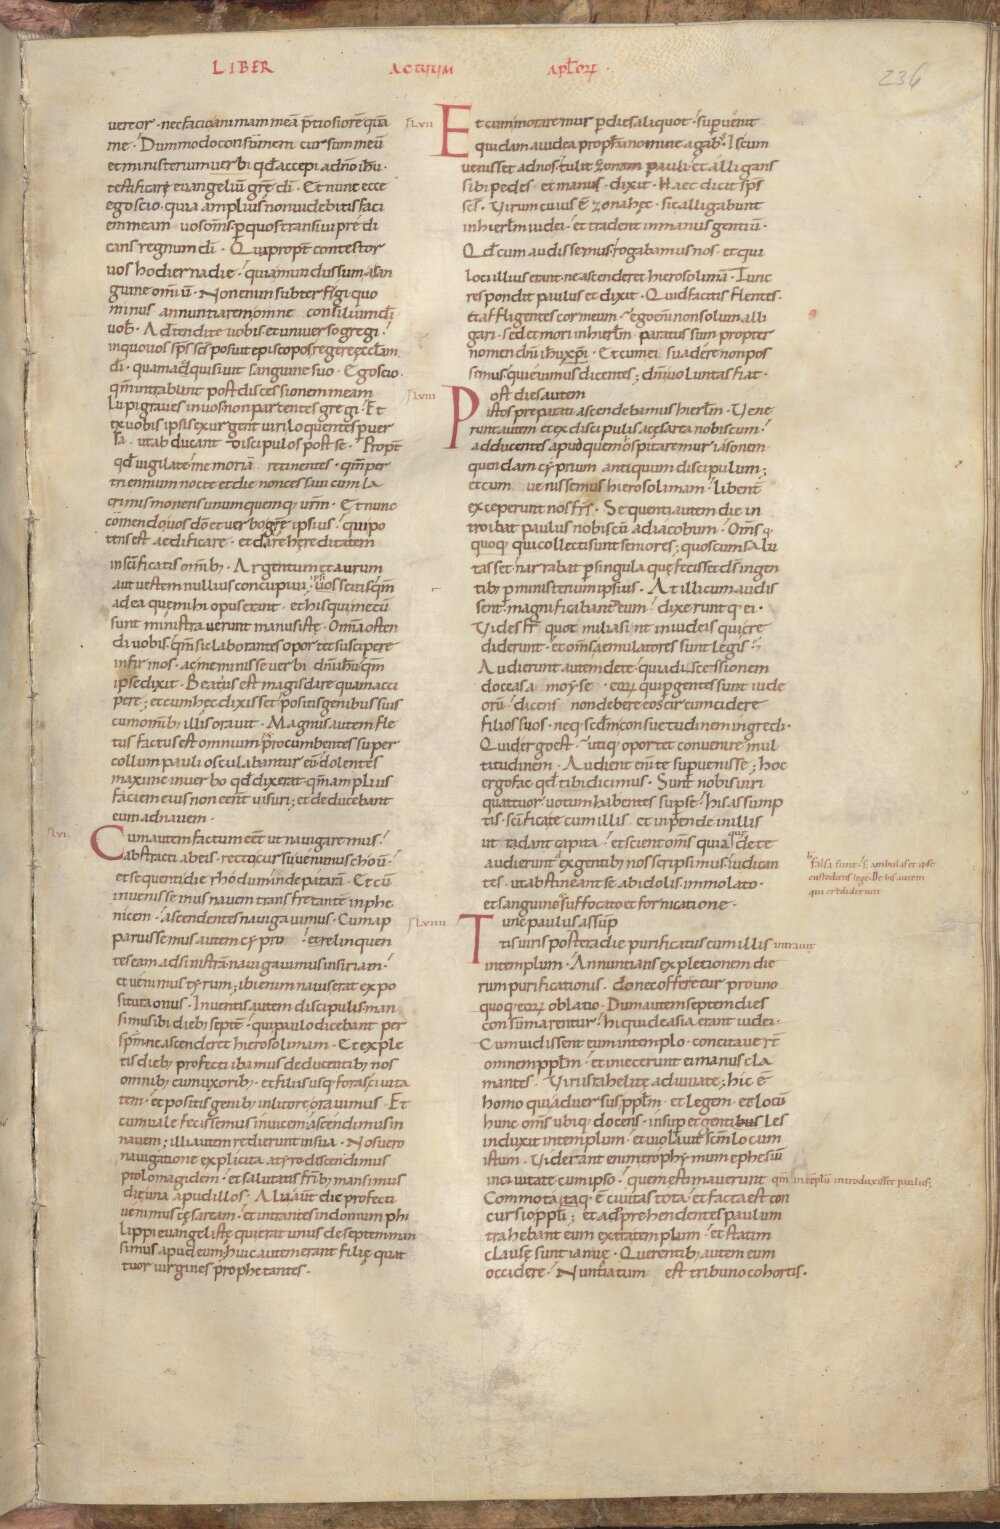 LIBER ACTUUM APŁOꝜ
236
vereor · nec facio animam meā p̄tiosiorē quā
me · Dummodo consūmem cursum meū
et ministerium verbi qđ accepi adn̄o ihū ·
testificare evangeliū grę̄ dī · Et nunc ecce
ego scio · quia amplius non videbitis faci
em meam vos om̄s · p quos transivi predi
cans regnum dī · Quapropt̄ contestor
vos hodierna die · quia mundus sum a san
guine om̄iū · Non enim subterfugi quo
minus annuntiarem omne consilium dī
vob̄ · Adtendite vobis et universo gregi ·
in quo vos sp̄s sc̄s posuit episcopos regere ęcclam
dī · quam adquisivit sanguine suo · Ego scio ·
qm̄ intrabunt post discessionem meam
lupi graves in vos non parcentes gregi · Et
ex vobis ipsis exurgent viri loquentes pver
sa · ut abducant discipulos post se · Propt̄
qđ vigilate memoriā retinentes · qm̄ per
triennium nocte et die non cessavi cum la
crimis monens unumquemq; vr̄m · Et nunc
cōmendo vos dō et verbo grę̄ ipsius · qui po
tens est aedificare · et dare hereditatem
in sc̄ificatis om̄ib; · Argentum et aurum
aut vestem nullius concupivi · ipsi vos scitis qm̄
ad ea quę mihi opus erant · et his qui mecū
sunt ministraverunt manus istę · Om̄ia osten
di vobis · qm̄ sic laborantes oportet suscipere
infirmos · ac meminisse verbi dn̄i ihū qm̄
ipse dixit · Beatius est magis dare quam acci
pere ; et cum hęc dixisset · positis genibus suis
cum om̄ib; illis oravit · Magnus autem fle
tus factus est omnium · procumbentes super
collum pauli osculabantur eū dolentes
maxime in verbo qđ dixerat · qm̄ amplius
faciem eius non eēnt visuri ; et deducebant
eum ad navem ·
ſlvi · Cum autem factum eēt ut navigaremus ·
abstracti ab eis · recto cursu venimus choū ·
et sequenti die rhodum inde patarā · Et cū
invenissemus navem transfretante in phe
nicem · ascendentes navigavimus · Cum ap
paruissemus autem cypro · et relinquen
tes eam ad sinistrā navigavimus in siriam ·
et venimus tyrum ; ibi enim navis erat expo
situra onus · Inventis autem discipulis man
simus ibi dieb; septē · qui paulo dicebant per
spm̄ ne ascenderet hierosolimam · Et exple
tis dieb; profecti ibamus deducentib; nos
omnib; cum uxorib; · et filiis usq; foras civita
tem · et positis genib; in litore oravimus · Et
cum vale fecissemus invicem · ascendimus in
navem ; illi autem redierunt in sua · Nos vero
navigatione explicita a tyro discendimus
ptolomaidem · et salutatis frīb; mansimus
die una apud illos · Alia aut̄ die profecti
venimus cęsaream · et intrantes in domum phi
lippi evangelistę qui erat unus de septem man
simus apud eum ; huic autem erant filię quat
tuor virgines prophetantes ·
ſlvii Et cum moraremur p dies aliquot · supvenit
quidam a iudea proph̄a nomine agab; · Is cum
venisset ad nos · tulit zonam pauli · et alligans
sibi pedes · et manus · dixit · Haec dicit sp̄s
sc̄s · Virum cuius ē zona hęc · sic alligabunt
in hierl̄m iudei · et tradent in manus gentiū ·
Qđ cum audissemus · rogabamus nos · et qui
loci illius erant · ne ascenderet hierosolimā · Tunc
respondit paulus et dixit · Quid facitis flentes ·
et affligentes cor meum · ego em̄ non solum alli
gari · sed et mori in hierl̄m paratus sum propter
nomen dn̄i ihū xp̄i · Et cum ei suadere non pos
simus · quievimus dicentes ; dn̄i voluntas fiat ·
ſlviii Post dies autem
istos preparati ascendebamus hierl̄m · Vene
runt autem et ex discipulis a cęsarea nobiscum ·
adducentes apud quem ospitaremur iasonem
quendam cyprium antiquum discipulum ;
et cum venissemus hierosolimam · libent̄
exceperunt nos fr̄s · Sequenti autem die in
troibat paulus nobiscū ad iacobum · Om̄s q;
quoq; qui collecti sunt seniores ; quos cum salu
tasset · narrabat p singula quę fecisset dī in gen
tib; p ministerium ipsius · At illi cum audis
sent · magnificabant eum · dixerunt q; ei ·
Vides fr̄ quot milia sint in iudeis qui cre
diderunt · et om̄s aemulatores sunt legis ·
Audierunt autem de te · quia discessionem
doceas a moyse · eoꝜ qui p gentes sunt iude
orū · dicens non debere eos circumcidere
filios suos · neq; scdm̄ consuetudinem ingredi ·
Quid ergo est · utiq; oportet convenire mul
titudinem · Audient em̄ te supvenisse ; hoc
ergo fac qđ tibi dicimus · Sunt nobis viri
quattuor votum habentes sup se · his assump
tis · sc̄ifica te cum illis · et inpende in illis
ut radant capita · et scient om̄s quia que de te
audierunt
falsa sunt · s; ambulas et ipse
custodiens legē · De his autem
qui crediderunt
ex gentib; nos scripsimus · iudican
tes · ut abstineant se ab idolis immolato ·
et sanguine suffocato et fornicatione ·
ſlviiii Tunc paulus assūp
tis viris postera die purificatus cum illis intravit
in templum · Annuntians expletionem die
rum purificationis · donec offeretur pro uno
quoq; eoꝜ oblatio · Dum autem septem dies
consūmarentur · hi qui de asia erant iudei ·
Cum vidissent eum in templo · concitaverт̄
omnem ppl̄m · et iniecerunt ei manus cla
mantes · Viri israhelitę adiuvate ; hic ē
homo qui adversus ppl̄m · et legem · et locū
hunc om̄s ubiq; docens · insup et gentiles
induxit in templum · et violavit sc̄m locum
istum · Viderant enim trophymum ephesiū
in civitate cum ipso · quem estimaverunt qm̄ in tēplū introduxisset paulus ;
Commotaq; ē civitas tota · et facta est con
cursio ppl̄i ; et adprehendentes paulum
trahebant eum extra templum · et statim
clausę sunt ianuę · Querentib; autem eum
occidere · Nuntiatum est tribuno cohortis ·